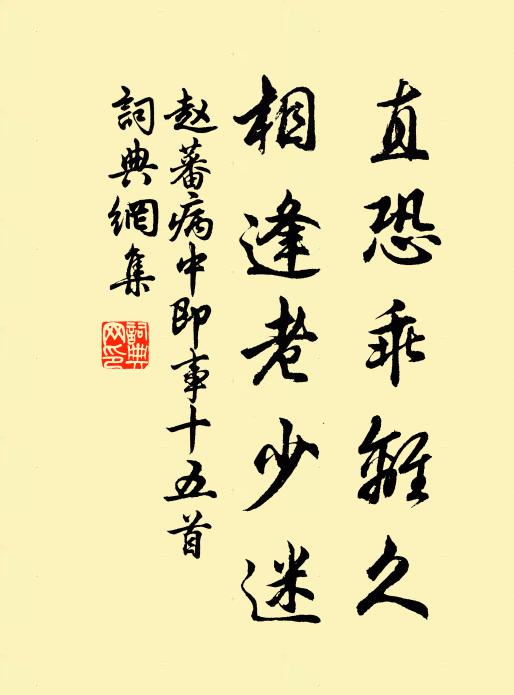 直恐乖離久
相逢老少迷
赵蕃病中即事十五首
詞典網集
詞典網印